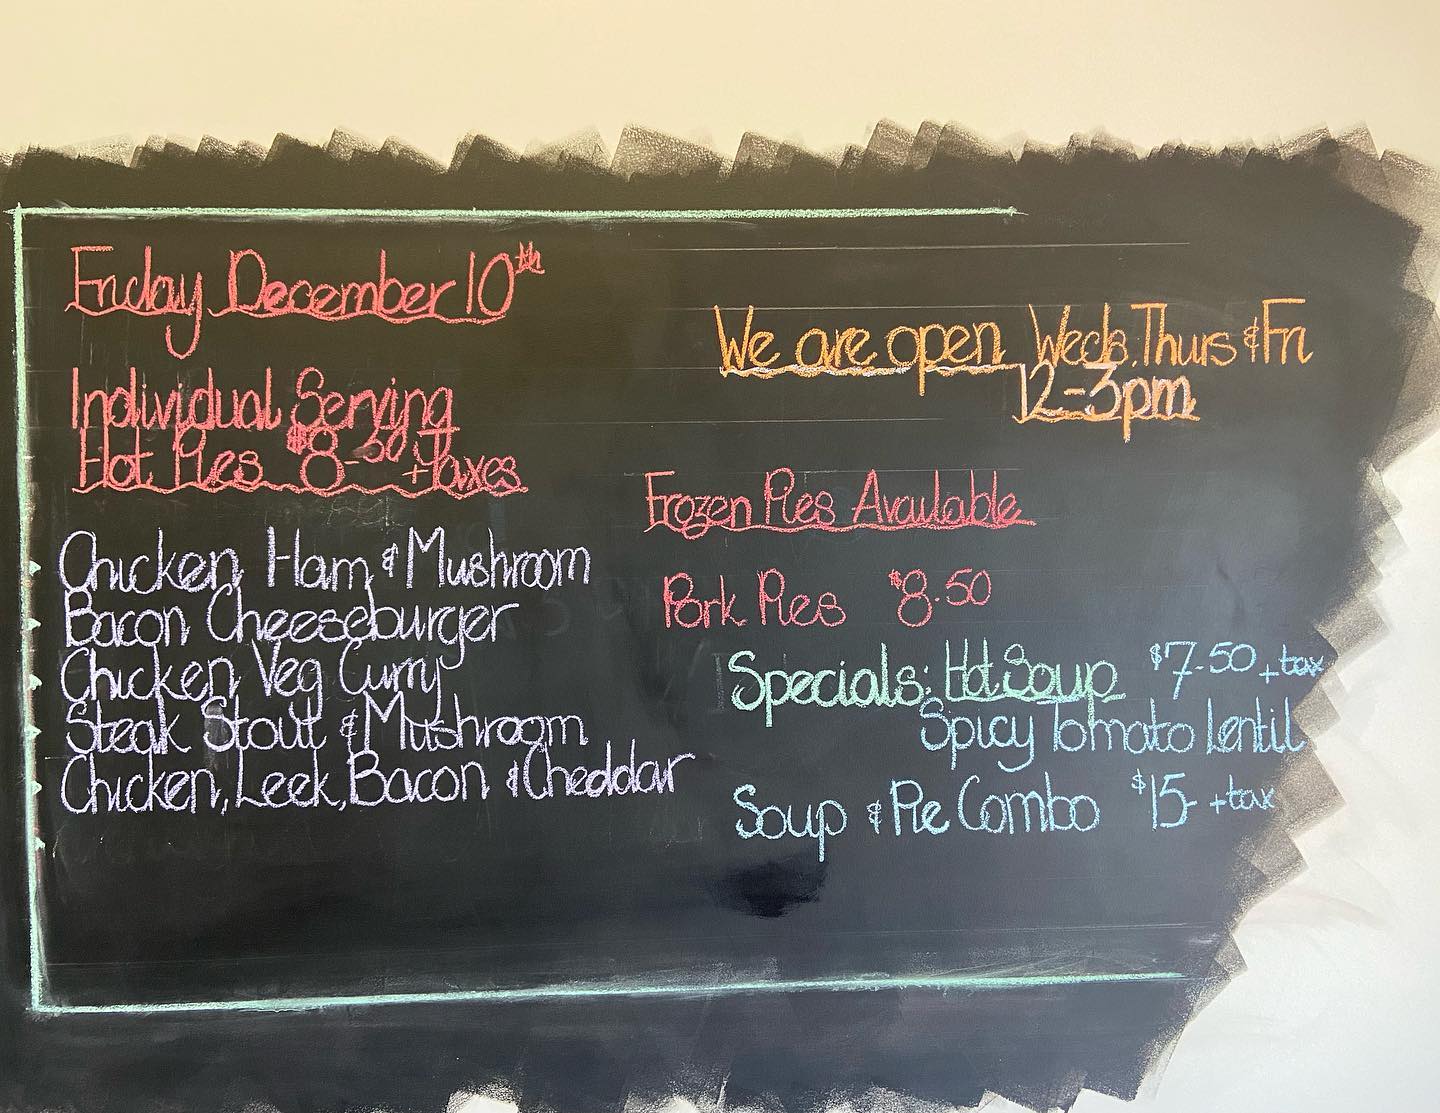 Friday December 10th
Individual Serving
Hot Pies $8-50 + taxes
Chicken Ham & Mushroom
Bacon Cheeseburger
Chicken Veg Curry
Steak Stout & Mushroom
Chicken, Leek, Bacon & Cheddar
We are open Weds, Thurs & Fri
12-3pm
Frozen Pies Available
Pork Pies $8.50
Specials: Hot Soup $7.50 + tax
Spicy Tomato Lentil
Soup & Pie Combo $15- + tax